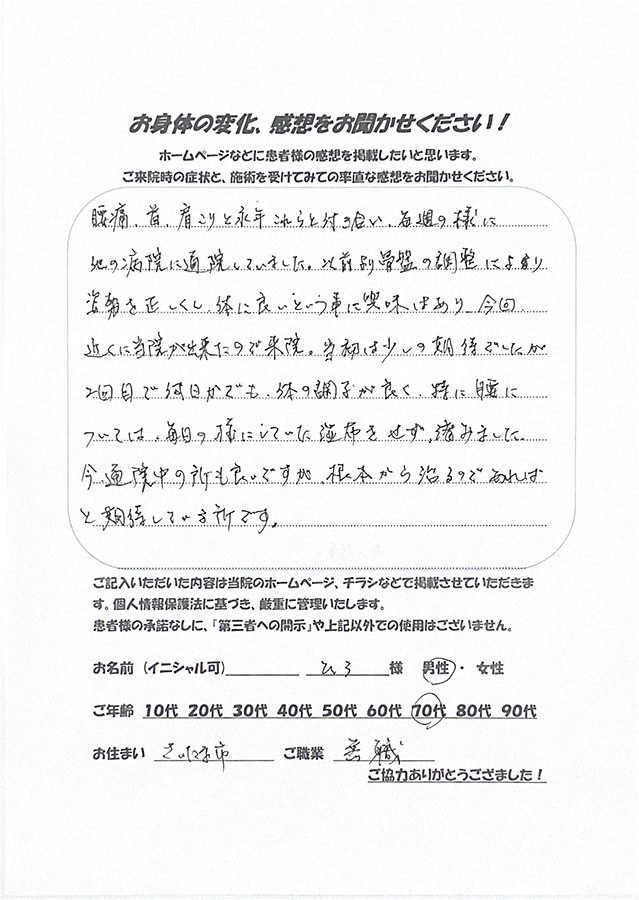 お身体の変化、感想をお聞かせください！
ホームページなどに患者様の感想を掲載したいと思います。
ご来院時の症状と、施術を受けてみての率直な感想をお聞かせください。
腰痛、首、肩こりと永年これらと付き合い、毎週の様に
他の病院に通院していました。以前より骨盤の調整により
姿勢を正しくし、体に良いという事に興味はあり、今回
近くに当院が出来たので来院。当初は少しの期待でしたが
2回目で何日かでも、体の調子が良く、特に腰に
ついては、毎日の様にしていた湿布をせず、済みました。
今、通院中の所も良いですが、根本から治るのであれば
と期待している所です。
ご記入いただいた内容は当院のホームページ、チラシなどで掲載させていただきま
す。個人情報保護法に基づき、厳重に管理いたします。
患者様の承諾なしに、「第三者への開示」や上記以外での使用はございません。
お名前（イニシャル可） ひろ 様 男性・女性
ご年齢 10代 20代 30代 40代 50代 60代 70代 80代 90代
お住まい さいたま市 ご職業 無職
ご協力ありがとうござました！